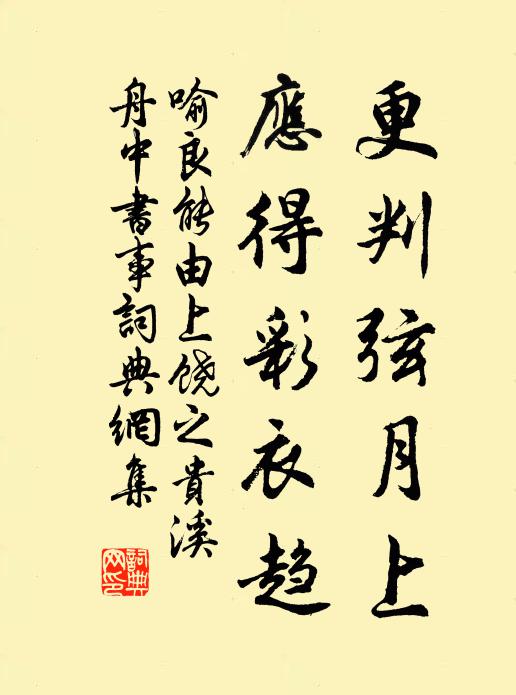 更判弦月上
應得彩衣趋
喻良能由上饒之貴溪
舟中書事詞典網集
詞典
网印